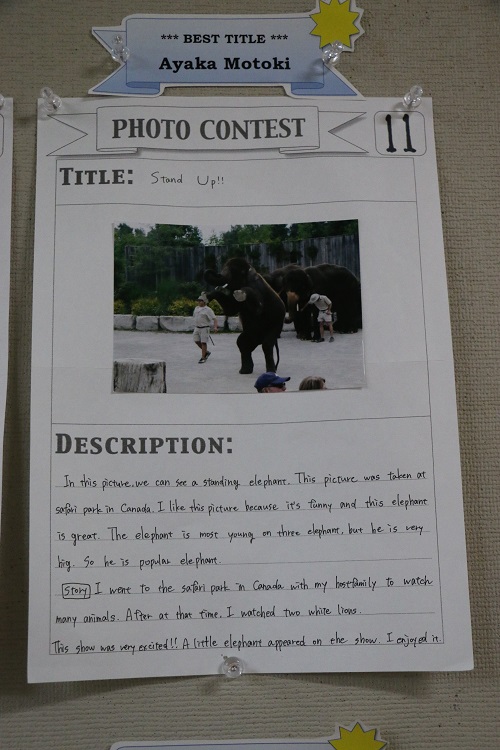 *** BEST TITLE ***
Ayaka Motoki
PHOTO CONTEST
11
TITLE: Stand Up!!
DESCRIPTION:
In this picture, we can see a standing elephant. This picture was taken at
safari park in Canada. I like this picture because it's funny and this elephant
is great. The elephant is most young on three elephant, but he is very
big. So he is popular elephant.
Story I went to the safari park in Canada with my hostfamily to watch
many animals. After at that time, I watched two white lions.
This show was very excited!! A little elephant appeared on the show. I enjoyed it.